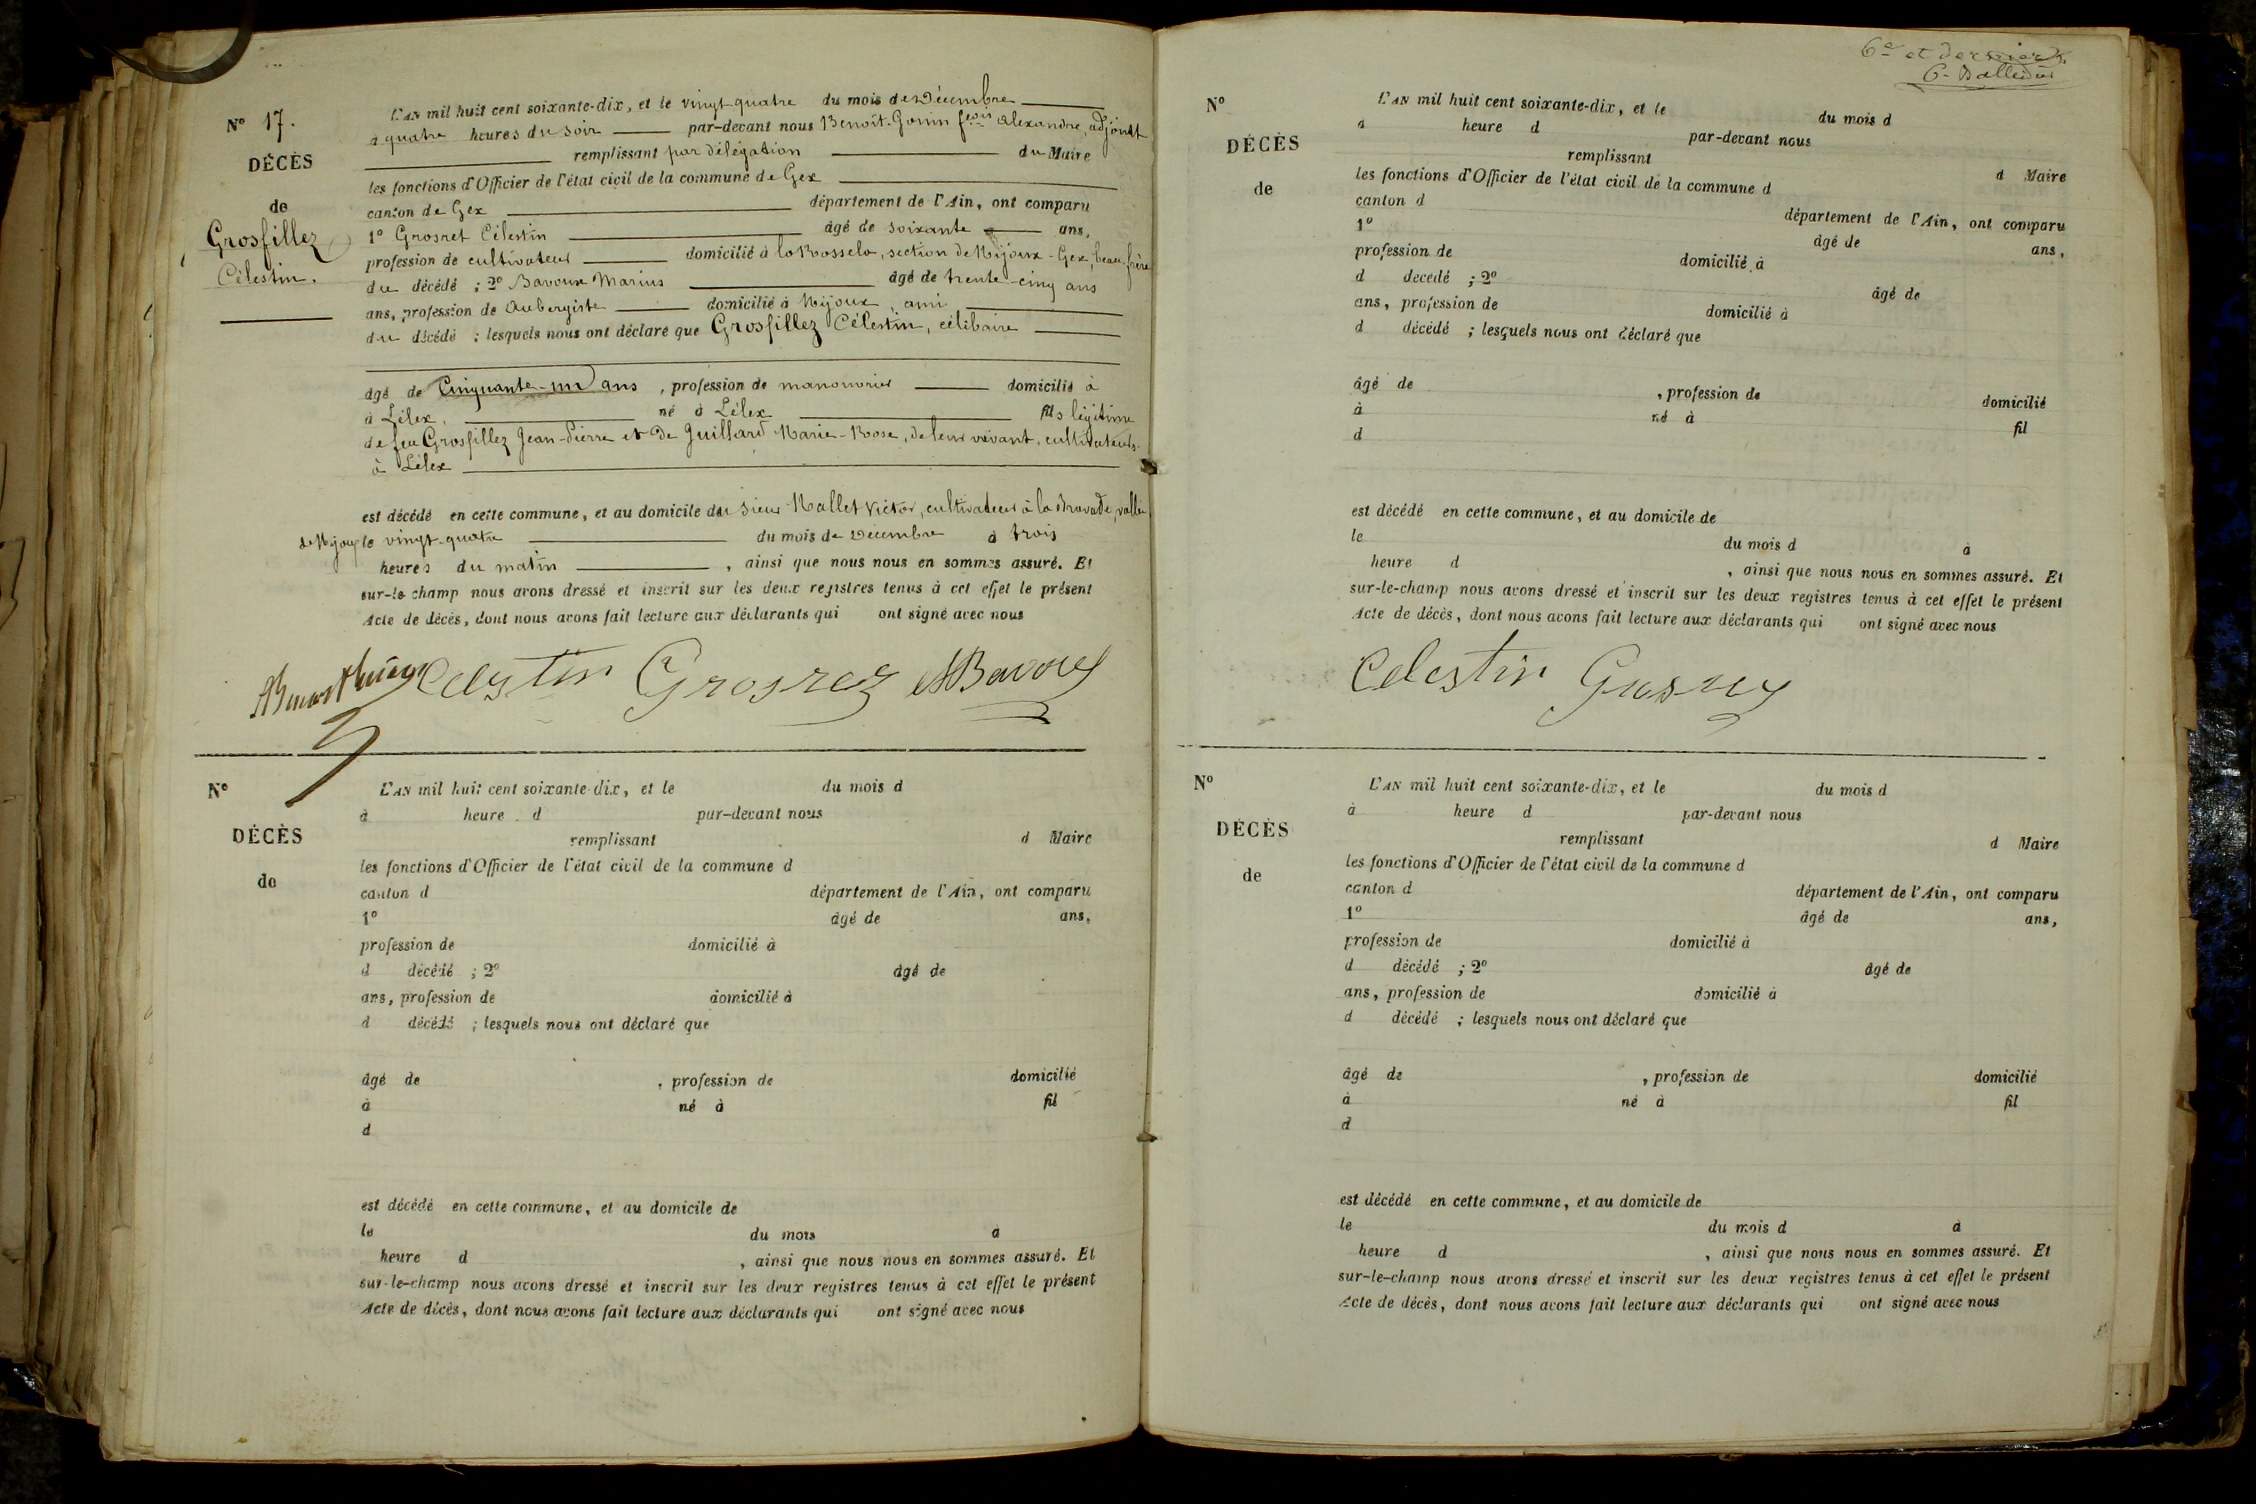 Nº 17.
DÉCÈS
de
Grosfillez
Célestin.
L'AN mil huit cent soixante-dix, et le vingt quatre du mois de Décembre
à quatre heures du soir par-devant nous Benoît-Gonin fçois Alexandre, adjoint
remplissant par délégation du Maire
les fonctions d'Officier de l'état civil de la commune de Gex
canton de Gex département de l'Ain, ont comparu
1º Grosret Célestin âgé de soixante ans,
profession de cultivateur domicilié à la Rossela, section de Mijoux-Gex, beau-frère
du décédé ; 2º Bavoux Marius âgé de trente-cinq ans
ans, profession de Aubergiste domicilié à Mijoux, ami
du décédé ; lesquels nous ont déclaré que Grosfillez Célestin, célibaire
âgé de Cinquante-un ans , profession de manouvrier domicilié à
à Lélex, né à Lélex fils légitime
de feu Grosfillez Jean-Pierre et de Guillard Marie-Rose, de leur vivant, cultivateurs
à Lélex
est décédé en cette commune, et au domicile du sieur Mallet Victor, cultivateur à la Bravade, vallée
de Mijoux le vingt-quatre du mois de Décembre à trois
heures du matin , ainsi que nous nous en sommes assuré. Et
sur-le-champ nous avons dressé et inscrit sur les deux registres tenus à cet effet le présent
Acte de décès, dont nous avons fait lecture aux déclarants qui ont signé avec nous
Celestin Grosrez MBavoux
Nº
DÉCÈS
de
L'AN mil huit cent soixante-dix, et le du mois d
à heure d par-devant nous
remplissant d Maire
les fonctions d'Officier de l'état civil de la commune d
canton d département de l'Ain, ont comparu
1º âgé de ans,
profession de domicilié à
d décédé ; 2º âgé de
ans, profession de domicilié à
d décédé ; lesquels nous ont déclaré que
âgé de , profession de domicilié
à né à fil
d
est décédé en cette commune, et au domicile de
le du mois à
heure d , ainsi que nous nous en sommes assuré. Et
sur-le-champ nous avons dressé et inscrit sur les deux registres tenus à cet effet le présent
Acte de décès, dont nous avons fait lecture aux déclarants qui ont signé avec nous
6e et dernier
Nº
DÉCÈS
de
L'AN mil huit cent soixante-dix, et le du mois d
à heure d par-devant nous
remplissant d Maire
les fonctions d'Officier de l'état civil de la commune d
canton d département de l'Ain, ont comparu
1º âgé de ans,
profession de domicilié à
d décédé ; 2º âgé de
ans, profession de domicilié à
d décédé ; lesquels nous ont déclaré que
âgé de , profession de domicilié
à né à fil
d
est décédé en cette commune, et au domicile de
le du mois d à
heure d , ainsi que nous nous en sommes assuré. Et
sur-le-champ nous avons dressé et inscrit sur les deux registres tenus à cet effet le présent
Acte de décès, dont nous avons fait lecture aux déclarants qui ont signé avec nous
Celestin
Nº
DÉCÈS
de
L'AN mil huit cent soixante-dix, et le du mois d
à heure d par-devant nous
remplissant d Maire
les fonctions d'Officier de l'état civil de la commune d
canton d département de l'Ain, ont comparu
1º âgé de ans,
profession de domicilié à
d décédé ; 2º âgé de
ans, profession de domicilié à
d décédé ; lesquels nous ont déclaré que
âgé de , profession de domicilié
à né à fil
d
est décédé en cette commune, et au domicile de
le du mois d à
heure d , ainsi que nous nous en sommes assuré. Et
sur-le-champ nous avons dressé et inscrit sur les deux registres tenus à cet effet le présent
Acte de décès, dont nous avons fait lecture aux déclarants qui ont signé avec nous